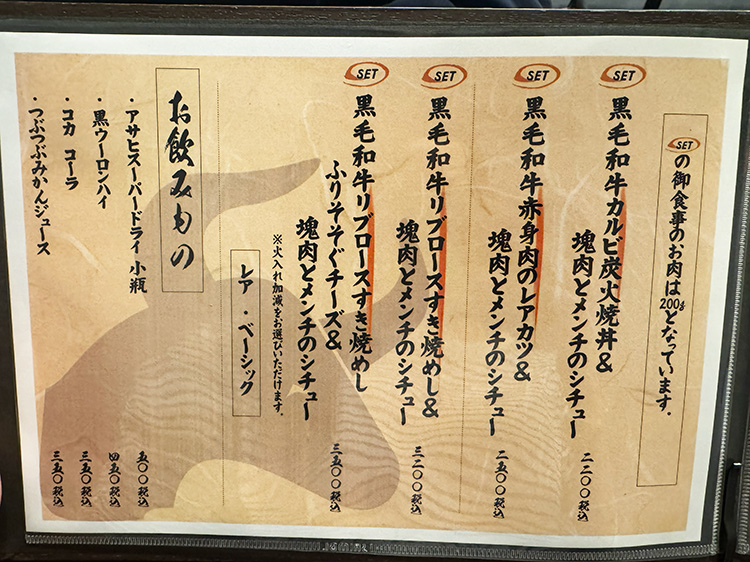 SETの御食事のお肉は200gとなっています。
SET
黒毛和牛カルビ炭火焼丼&
塊肉とメンチのシチュー
二二〇〇税込
SET
黒毛和牛赤身肉のレアカツ&
塊肉とメンチのシチュー
二五〇〇税込
SET
黒毛和牛リブロースすき焼めし&
塊肉とメンチのシチュー
三二〇〇税込
SET
黒毛和牛リブロースすき焼めし
ふりそそぐチーズ&
塊肉とメンチのシチュー
三五〇〇税込
※火入れ加減をお選びいただけます。
レア ・ ベーシック
お飲みもの
・アサヒスーパードライ 小瓶
五〇〇税込
・黒ウーロンハイ
四五〇税込
・コカ コーラ
三五〇税込
・つぶつぶみかんジュース
三五〇税込